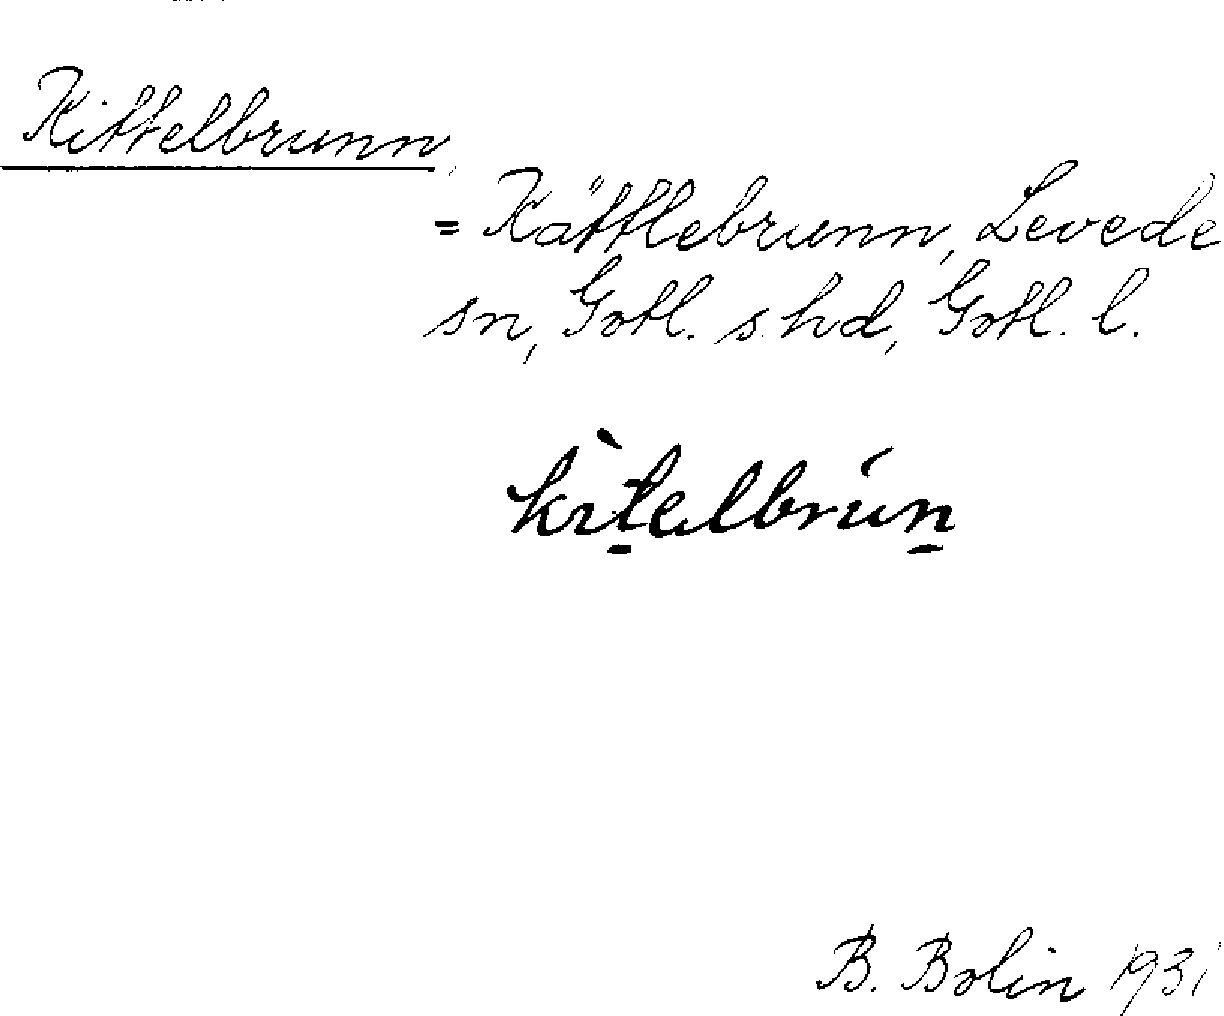 Kittelbrunn,
= Kättlebrunn, Levede
sn, Gotl. s. hd, Gotl. l.
kìt̲elbrún̲
B. Bolin 1931